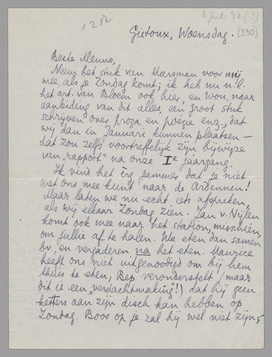 1282
Gistoux, Woensdag.
(230)
Beste Menno,
Neem het stuk van Marsman voor mij
mee als je Zondag komt; ik heb nu n.l.
het art. van Bloem ook hier, en wou naar
aanleiding van dit alles een groot stuk
schrijven over proza en poëzie enz., dat
wij dan in Januari kunnen plaatsen —
dat zou zelfs voortreffelijk zijn bijwijze
van "rapport" na onze Iᵉ jaargang.
Ik vind het erg jammer dat je niet
met ons mee kunt naar de Ardennen!
Maar laten we nu echt iets afspreken,
als wij elkaar Zondag zien. Jan v. Nijlen
komt ook mee naar het station, misschien,
om jullie af te halen. We eten dan samen
bv. en vergaderen na het eten. Maurice
heeft ons niet uitgenoodigd om bij hem
thuis te eten, Bep veronderstelt (maar
dit is een verdachtmaking!) dat hij geen
ketters aan zijn disch kan hebben op
Zondag. Boos op je zal hij wel niet zijn,